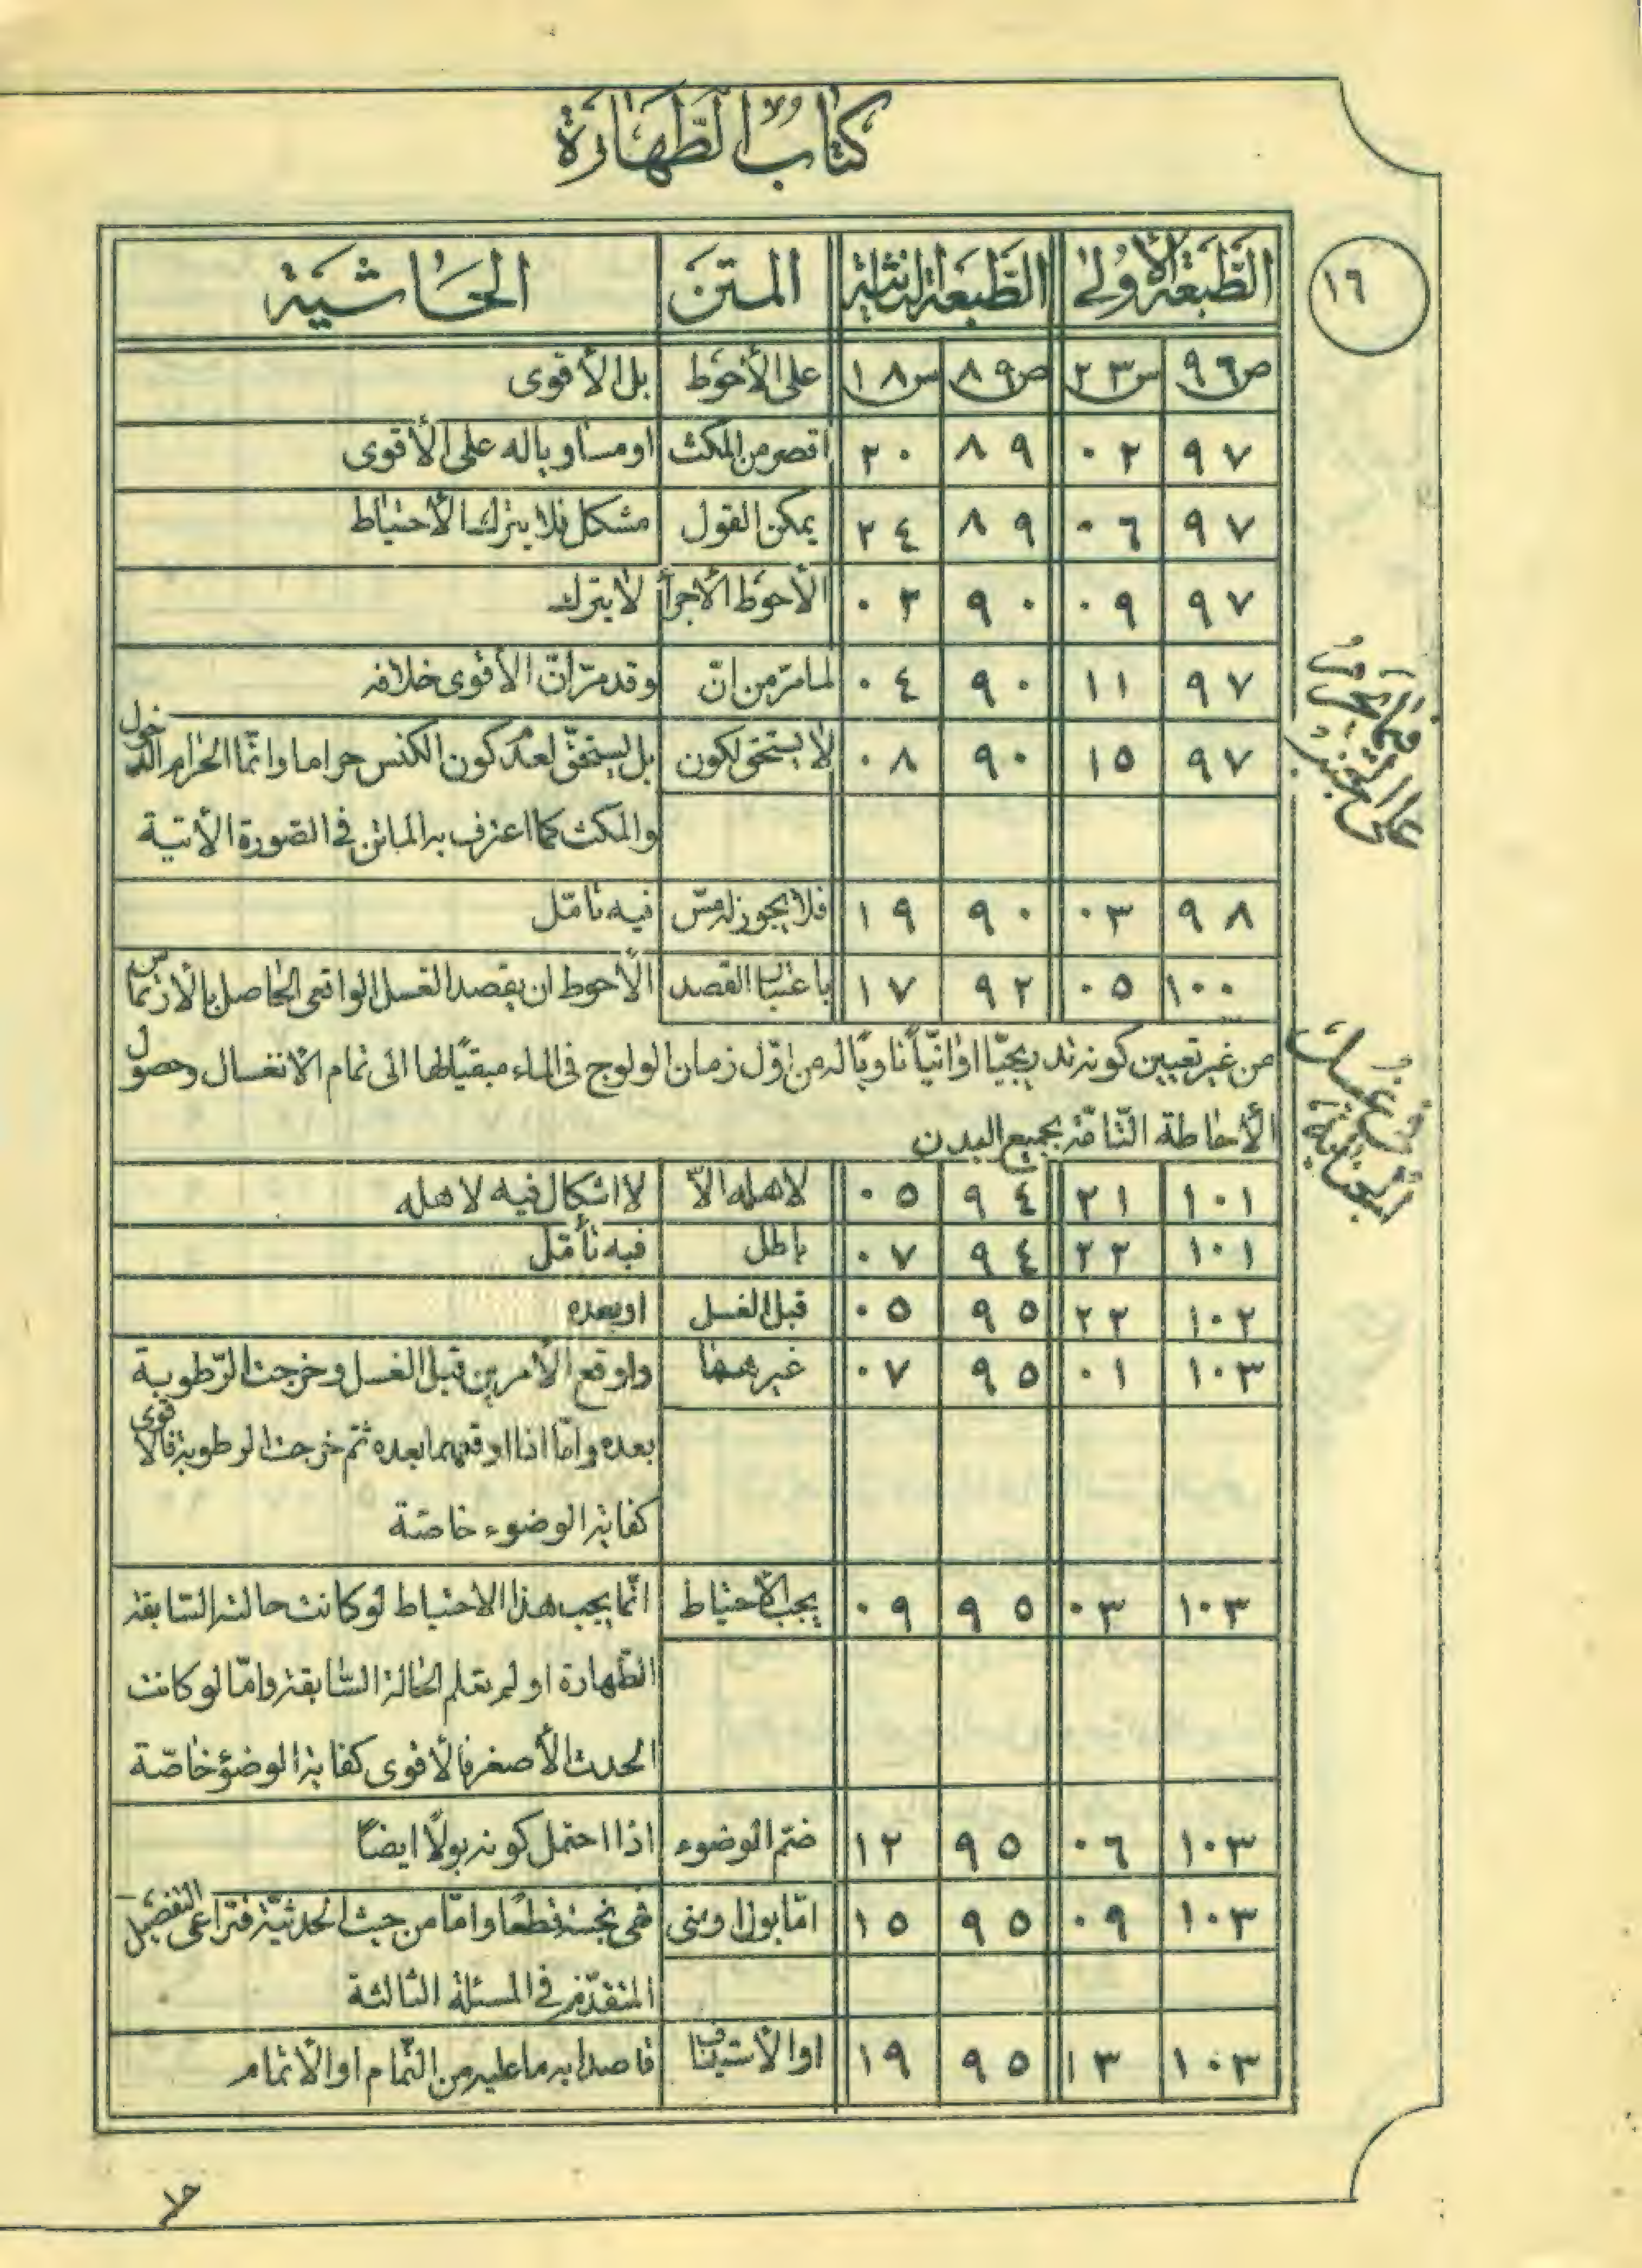 كتاب الطّهارة
١٦
الطّبعة الأولى الطّبعة الثانية المتن الحاشية
ص٩٦ س٢٣ ص٨٩ س١٨ على الأحوط بل الأقوى
٩٧ ٠٢ ٨٩ ٢٠ اقصر من المكث او مساويا له على الأقوى
٩٧ ٠٦ ٨٩ ٢٤ يمكن القول مشكل فلا يترك الأحتياط
٩٧ ٠٩ ٩٠ ٠٣ الأحوط الأجرأ لا يترك
٩٧ ١١ ٩٠ ٠٤ لما مرّ من انّ وقد مرّ انّ الأقوى خلافه
فيما يحرم
على الجنب
٩٧ ١٥ ٩٠ ٠٨ لا يستحق لكون بل يستحقّ لعدم كون الكنس حراما وانّما الحرام الدخول
والمكث كما اعترف به الماتن في الصّورة الأتية
٩٨ ٠٣ ٩٠ ١٩ فلا يجوز له مسّ فيه تأمّل
١٠٠ ٠٥ ٩٢ ١٧ باعتبار القصد الأحوط ان يقصد الغسل الواقعي الحاصل بالأرتماس
من غير تعيين كونه تدريجيّا او انيّاً ناويًا له من اوّل زمان الولوج في الماء مبقيًا لها الى تمام الانغسال وحصول
الأحاطة التّامّة بجميع البدن
١٠١ ٢١ ٩٤ ٠٥ لاهله الاّ لا اشكال فيه لاهله
١٠١ ٢٢ ٩٤ ٠٧ باطل فيه تأمّل
١٠٢ ٢٢ ٩٥ ٠٥ قبل الغسل او بعده
١٠٣ ٠١ ٩٥ ٠٧ غيرهما واوقع الأمرين قبل الغسل وخرجت الرّطوبة
بعده وامّا اذا اوقعهما بعده ثمّ خرجت الرطوبة فالأقوى
كفاية الوضوء خاصّة
١٠٣ ٠٣ ٩٥ ٠٩ يجب الأحتياط انّما يجب هذا الاحتياط لو كانت حالته السّابقة
الطّهارة او لم تعلم الحالة السّابقة وامّا لو كانت
الحدث الأصغر فالأقوى كفاية الوضوء خاصّة
١٠٣ ٠٦ ٩٥ ١٢ ضمّ الوضوء اذا احتمل كونه بولًا ايضًا
١٠٣ ٠٩ ٩٥ ١٥ امّا بول او منى فهى نجسة قطعًا وامّا من حيث الحدثيّة فتراعى التفصيل
المتقدّم في المسئلة الثالثة
١٠٣ ١٣ ٩٥ ١٩ او الأستيناف قاصدا به ما عليه من التّمام او الأتمام